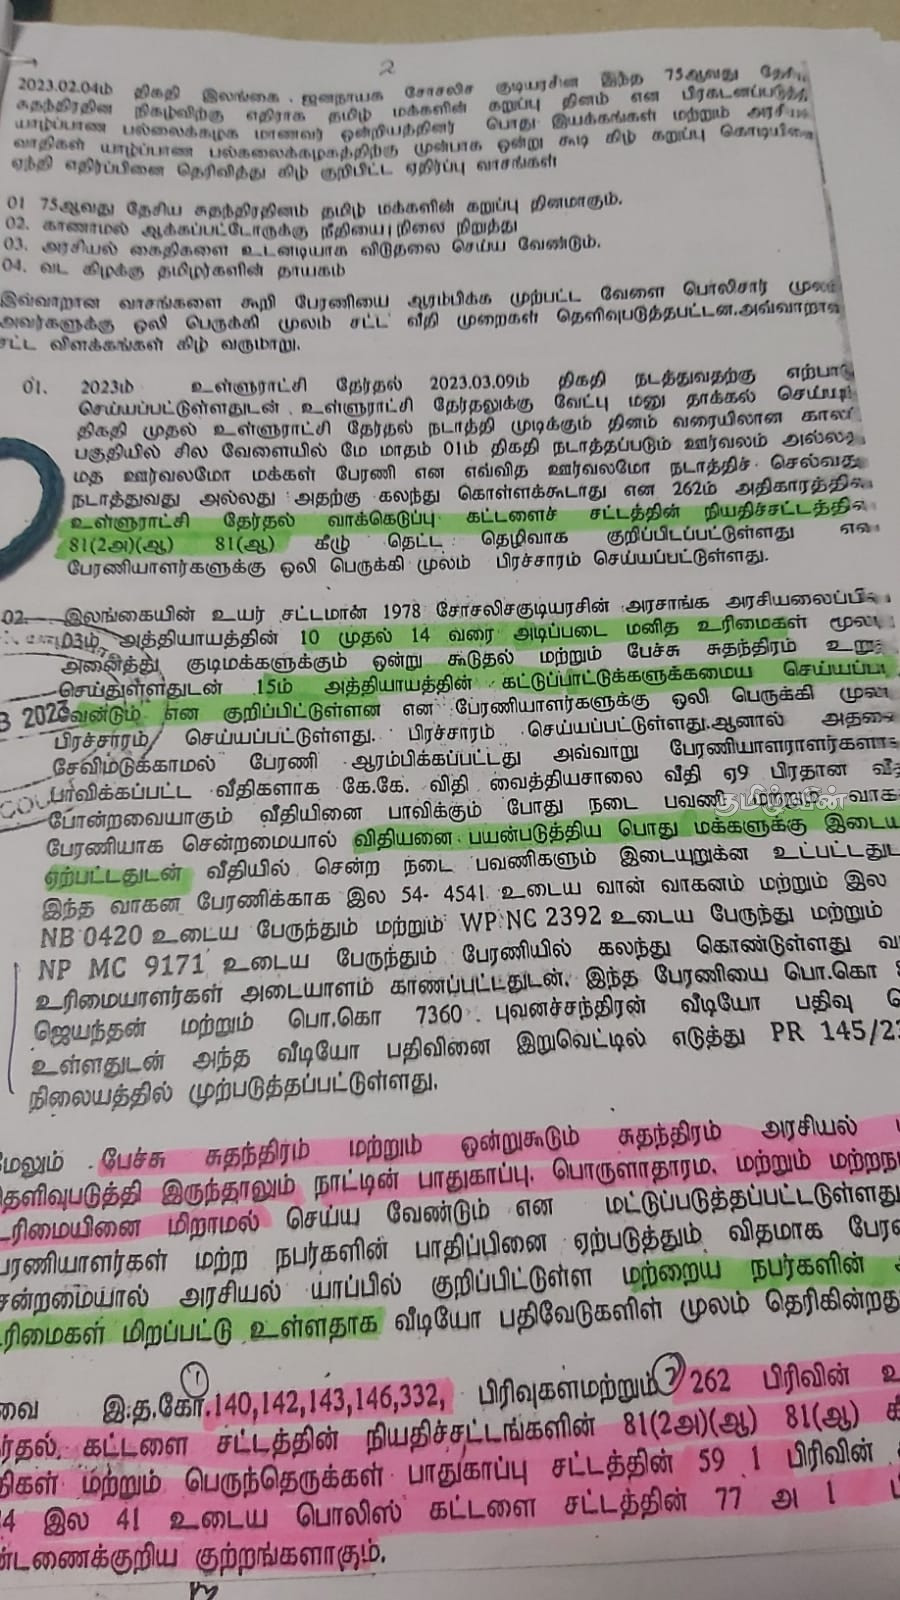 2
2023.02.04ம் திகதி இலங்கை ஜனநாயக சோசலிச குடியரசின இந்த 75ஆவது
சுதந்திரதின நிகழ்விற்கு எதிராக தமிழ் மக்களின் கறுப்பு தினம் என பிரகடனப்படுத்த
யாழ்ப்பாண பல்லைக்கழக மாணவர் ஒன்றியத்தினர் பொது இயக்கங்கள் மற்றும்
வாதிகள் யாழ்ப்பாண பல்கலைக்கழகத்திற்கு முன்பாக ஒன்று கூடி கிழ் கறுப்பு
ஏந்தி எதிர்ப்பினை தெரிவித்து கிழ் குறிபிட்ட ஏதிர்ப்பு வாசங்கள்
01 75ஆவது தேசிய சுதந்திரதினம் தமிழ் மக்களின் கறுப்பு தினமாகும்.
02. காணாமல் ஆக்கப்பட்டோருக்கு நீதியை நிலை நிறுத்து
03. அரசியல் கைதிகளை உடனடியாக விடுதலை செய்ய வேண்டும்.
04. வட கிழக்கு தமிழர்களின் தாயகம்
இவ்வாறான வாசங்களை கூறி பேரணியை ஆரம்பிக்க முற்பட்ட வேளை பொலிசார்
அவர்களுக்கு ஒலி பெருக்கி முலம் சட்ட வீதி முறைகள் தெளிவுபடுத்தபட்டன.
சட்ட விளக்கங்கள் கிழ் வருமாறு.
01. 2023ம் உள்ளுராட்சி தேர்தல் 2023.03.09ம் திகதி நடத்துவதற்கு
செய்யப்பட்டுள்ளதுடன் உள்ளுராட்சி தேர்தலுக்கு வேட்பு மனு தாக்கல்
திகதி முதல் உள்ளுராட்சி தேர்தல் நடாத்தி முடிக்கும் தினம் வரையிலான
பகுதியில் சில வேளையில் மே மாதம் 01ம் திகதி நடாத்தப்படும் ஊர்வலம்
மத ஊர்வலமோ மக்கள் பேரணி என எவ்வித ஊர்வலமோ நடாத்திச்
நடாத்துவது அல்லது அதற்கு கலந்து கொள்ளக்கூடாது என 262ம்
உள்ளுராட்சி தேர்தல் வாக்கெடுப்பு கட்டளைச் சட்டத்தின்
81(2அ)(ஆ) 81(ஆ) கீழு தெட்ட தெழிவாக குறிப்பிடப்பட்டுள்ளது
பேரணியாளர்களுக்கு ஒலி பெருக்கி முலம் பிரச்சாரம் செய்யப்பட்டுள்ளது.
02. இலங்கையின் உயர் சட்டமான் 1978 சோசலிசகுடியரசின் அரசாங்க
03ம் அத்தியாயத்தின் 10 முதல் 14 வரை அடிப்படை மனித உரிமைகள்
அனைத்து குடிமக்களுக்கும் ஒன்று கூடுதல் மற்றும் பேச்சு சுதந்திரம்
செய்துள்ளதுடன் 15ம் அத்தியாயத்தின் கட்டுப்பாட்டுக்களுக்கமைய
வேண்டும் என குறிப்பிட்டுள்ளன என பேரணியாளர்களுக்கு ஒலி பெருக்கி
பிரச்சாரம் செய்யப்பட்டுள்ளது. பிரச்சாரம் செய்யப்பட்டுள்ளது.ஆனால்
சேவிமடுக்காமல் பேரணி ஆரம்பிக்கப்பட்டது அவ்வாறு
பாவிக்கப்பட்ட வீதிகளாக கே.கே. விதி வைத்தியசாலை வீதி ஏ9 பிரதான
போன்றவையாகும் வீதியினை பாவிக்கும் போது நடை பவணி மற்றும்
தமிழ்வின்
பேரணியாக சென்றமையால் விதியனை பயன்படுத்திய பொது மக்களுக்கு
ஏற்பட்டதுடன் வீதியில் சென்ற நடை பவணிகளும் இடையுறுக்ன
இந்த வாகன பேரணிக்காக இல 54- 4541 உடைய வான் வாகனம் மற்றும் இல
NB 0420 உடைய பேருந்தும் மற்றும் WP NC 2392 உடைய பேருந்து மற்றும்
NP MC 9171 உடைய பேருந்தும் பேரணியில் கலந்து கொண்டுள்ளது
உரிமையாளர்கள் அடையாளம் காணப்பட்டதுடன். இந்த பேரணியை பொ.கொ
ஜெயந்தன் மற்றும் பொ.கொ 7360 புவனச்சந்திரன் வீடியோ பதிவு
உள்ளதுடன் அந்த வீடியோ பதிவினை இறுவெட்டில் எடுத்து PR 145/23
நிலையத்தில் முற்படுத்தப்பட்டுள்ளது.
மேலும் பேச்சு சுதந்திரம் மற்றும் ஒன்றுகூடும் சுதந்திரம் அரசியல்
தெளிவுபடுத்தி இருந்தாலும் நாட்டின் பாதுகாப்பு, பொருளாதாரம, மற்றும்
உரிமையினை மிறாமல் செய்ய வேண்டும் என மட்டுப்படுத்தப்பட்டடுள்ளது
பேரணியாளர்கள் மற்ற நபர்களின் பாதிப்பினை ஏற்படுத்தும் விதமாக
சென்றமையால் அரசியல் யாப்பில் குறிப்பிட்டுள்ள மற்றைய நபர்களின்
உரிமைகள் மிறப்பட்டு உள்ளதாக வீடியோ பதிவேடுகளிள் முலம் தெரிகின்றது
இ.த.கோ.140,142,143,146,332, பிரிவுகளமற்றும் 262 பிரிவின்
கட்டளை சட்டத்தின் நியதிச்சட்டங்களின் 81(2அ)(ஆ) 81(ஆ)
மற்றும் பெருந்தெருக்கள் பாதுகாப்பு சட்டத்தின் 59 1 பிரிவின்
இல 41 உடைய பொலிஸ் கட்டளை சட்டத்தின் 77 அ 1
குற்றங்களாகும்.